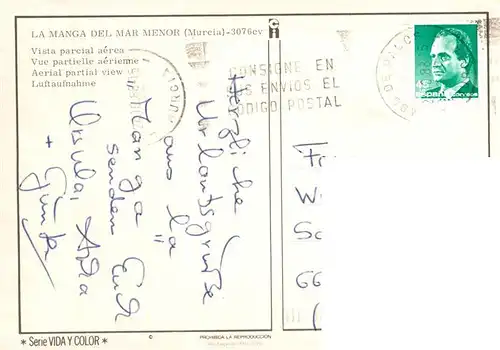 LA MANGA DEL MAR MENOR (Murcia)-3076cv
Vista parcial aérea
Vue partielle aérienne
Aerial partial view
Luftaufnahme
CONSIGNE EN
ENVIOS EL
CODIGO POSTAL
45
ESPAÑA
Herzliche
Urlaubsgrüße
aus La
Manga
senden Euch
Ursula,
+ Günter
Fa
W
So
66
(
* Serie VIDA Y COLOR *
©
PROHIBIDA LA REPRODUCCION